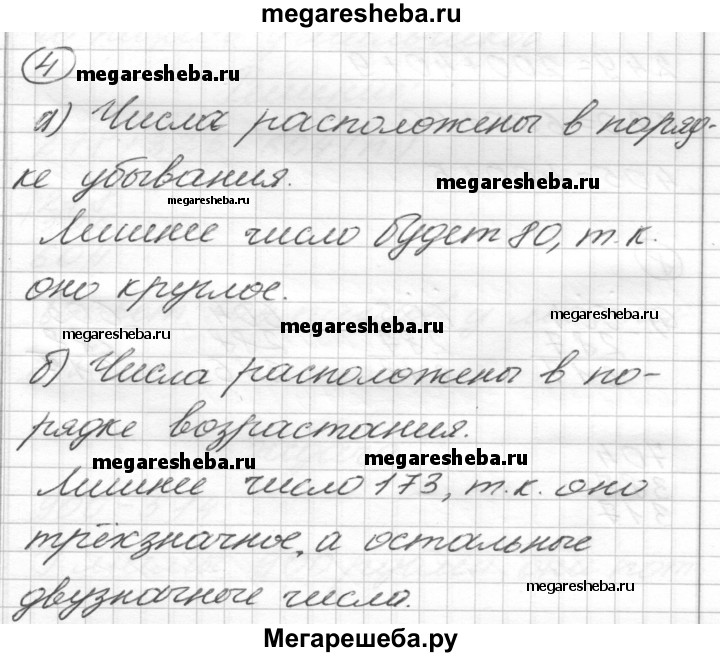 megaresheba.ru
4 megaresheba.ru
а) Числа расположены в поряд-
ке убывания. megaresheba.ru
megaresheba.ru
Лишнее число будет 80, т.к.
оно круглое.
megaresheba.ru megaresheba.ru
б) Числа расположены в по-
рядке возрастания.
megaresheba.ru megaresheba.ru
Лишнее число 173, т.к. оно
трёхзначное, а остальные
megaresheba.ru
двузначные числа.
Мегарешеба.ру